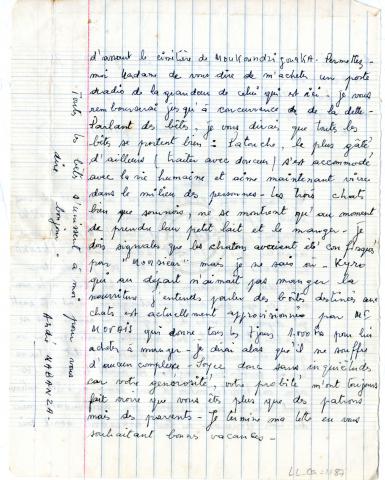 d'avant le cimetère de MOUKOUNDZI GOUAKA. Permettez-
moi Madame de vous dire de m'acheter un poste
dradio de la grandeur de celui qui est ici. Je vous
rembourserai jusqu'à concurrence de de la dette.
Parlant des bêtes, je vous dirais que toutes les
bêtes se portent bien : Latouche, le plus gâté
d'ailleurs (traiter avec douceur) s'est accommodé
avec la vie humaine et aime maintenant vivre
dans le milieu des personnes. Les trois chats
bien que sournois, ne se montrent qu'au moment
de prendre leur petit lait et le manger. Je
dois signaler que les chatons avaient été confisqués
par "Monsieur" mais je ne sais où. Kyro
qui au départ n'aimait pas manger la
nourriture j'entends parler des boîtes destinées aux
chats est actuellement approvisionné par Mr
MORAIS qui donne tous les jours 1.000 Frs pour lui
acheter à manger. Je dirai alors qu'il ne souffre
d'aucun complexe. Soyez donc sans inquiétudes
car votre générosité, votre probité m'ont toujours
fait croire que vous êtes plus que des patrons
mais des parents. Je termine ma lettre en vous
souhaitant bonnes vacances.
Toutes les bêtes s'unissent à moi pour vous
dire "bonjour"
André MABANZA